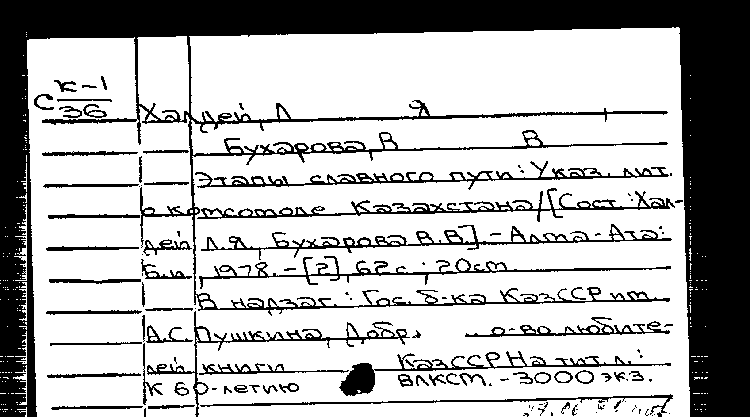 С К-1
36
Халдей, Л Я
Бухарова, В В
Этапы славного пути: Указ. лит.
о комсомоле Казахстана/[Сост.: Хал-
дей Л.Я., Бухарова В.В.]. - Алма-Ата:
Б.и., 1978. - [2], 62 с.; 20 cm.
В надзаг.: Гос. б-ка КазССР им.
А.С. Пушкина, Добр. о-во любите-
лей книги КазССР На тит. л.:
К 60-летию ВЛКСМ. - 3000 экз.